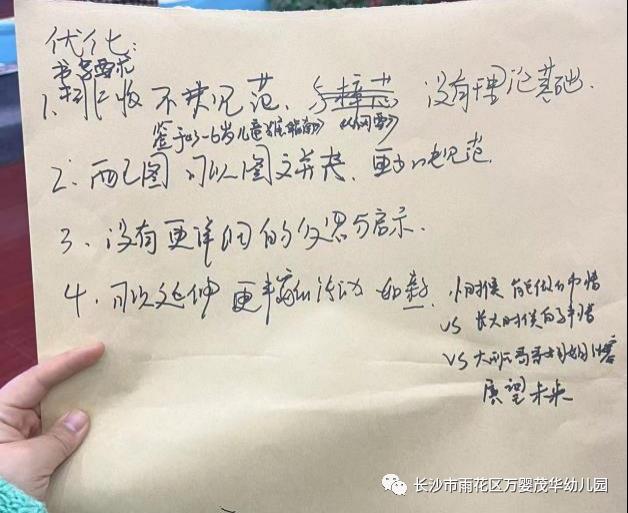 优化:
书写要求
1. 不够规范、没有理论基础.
鉴于《3-6岁儿童指南》《纲要》
2、配图可以图文并茂、更加规范
3、没有更详细的反思与启示.
4、可以延伸更丰富的活动 如:
小时候能做的事情
VS 长大时候的事情
VS 大班哥哥姐姐
展望未来
长沙市雨花区万婴茂华幼儿园